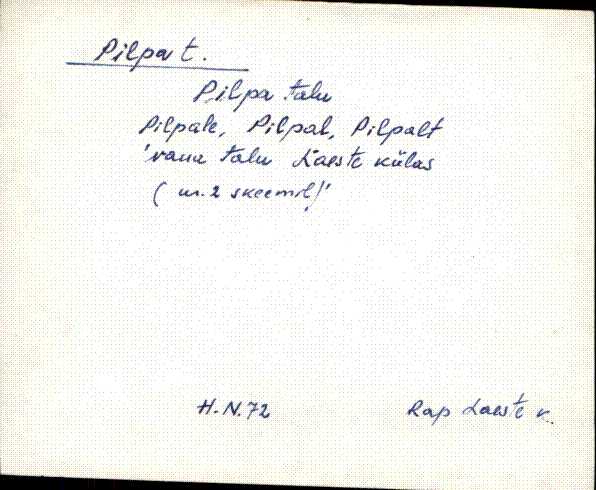 Pilpa t.
Pilpa talu
Pilpale, Pilpal, Pilpalt
'vana talu Laeste külas
(nr. 2 skeemil)'
H.N.72
Rap Laeste k.